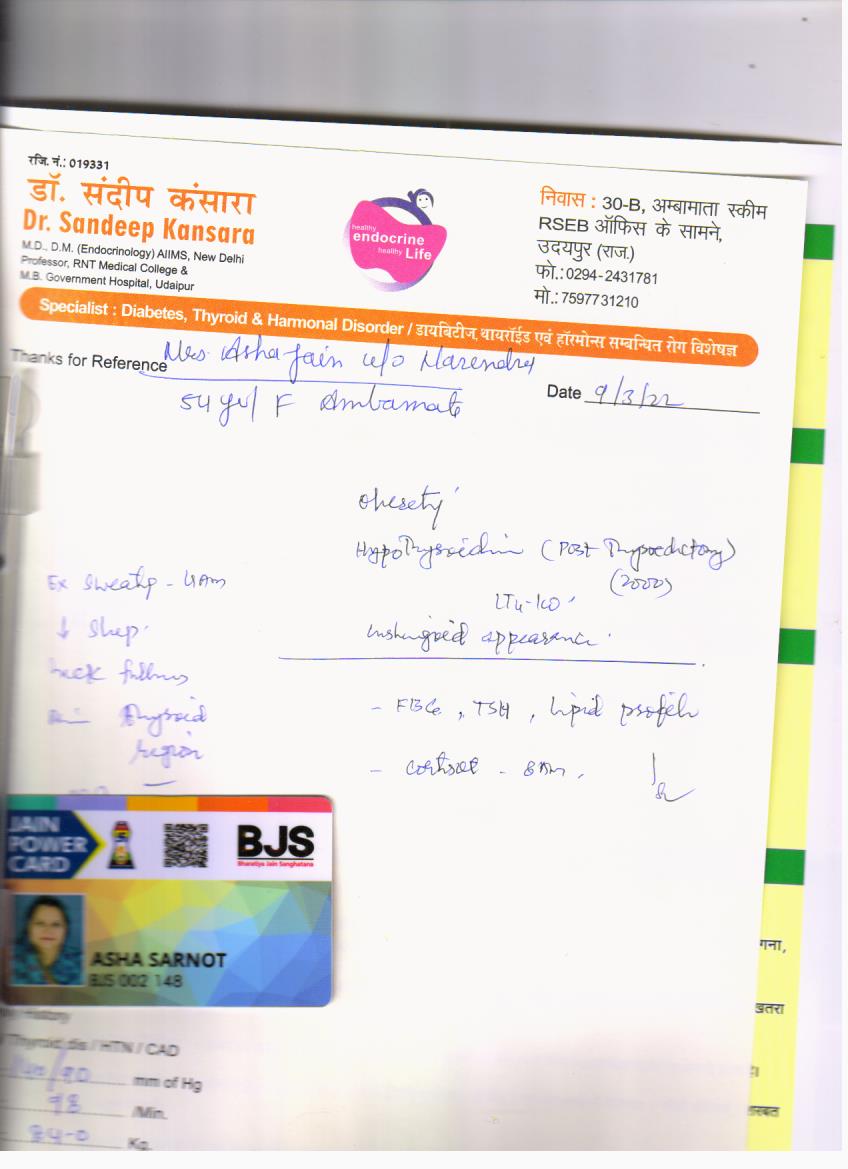 रजि. नं.: 019331
डॉ. संदीप कंसारा
Dr. Sandeep Kansara
M.D., D.M. (Endocrinology) AIIMS, New Delhi
Professor, RNT Medical College &
M.B. Government Hospital, Udaipur
healthy
endocrine
healthy Life
निवास : 30-B, अम्बामाता स्कीम
RSEB ऑफिस के सामने,
उदयपुर (राज.)
फो.: 0294-2431781
मो.: 7597731210
Specialist : Diabetes, Thyroid & Harmonal Disorder / डायबिटीज, थायरॉईड एवं हॉरमोन्स सम्बन्धित रोग विशेषज्ञ
Thanks for Reference Mrs Asha Jain w/o Narendra
54 yr/ F Ambamata
Date 9/3/22
Obesity
Hypothyroidism (Post Thyroidectomy)
(2000)
LT4-100
Cushingoid appearance
Ex Sweating - 4AM
↓ Sleep
neck fullness
Thyroid
region
- FBG, TSH, Lipid profile
- Cortisol - 8 AM,
JAIN
POWER
CARD
BJS
Bharatiya Jain Sanghatana
ASHA SARNOT
BJS 002 148
History
Thyroid dis / HTN / CAD
140/90 mm of Hg
98 /Min.
84-0 Kg.
गना,
खतरा
है।